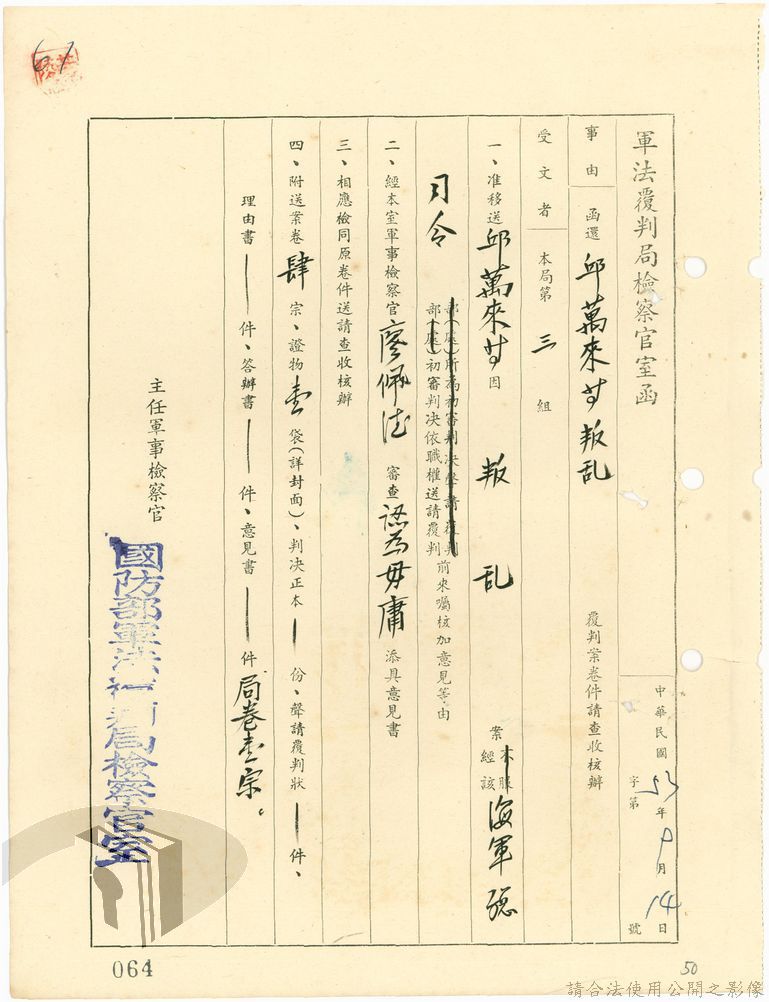 軍法覆判局檢察官室函
中華民國53年9月14日
字第 號
事由 函還邱萬來等叛乱 覆判案卷件請查收核辦
受文者 本局第三組
一、准移送邱萬來等因 叛乱 案 不服
經該 海軍總
司令
部(處)所為初審判决聲請覆判
部(處)初審判决依職權送請覆判
前來囑核加意見等由
二、經本室軍事檢察官廖佩德審查認為毋庸添具意見書
三、相應檢同原卷件送請查收核辦
四、附送案卷肆宗、證物壹袋(詳封面)、判决正本 份、聲請覆判狀 件、
理由書 件、答辯書 件、意見書 件 局卷壹宗。
主任軍事檢察官
國防部軍法覆判局檢察官室
064
50
請合法使用公開之影像